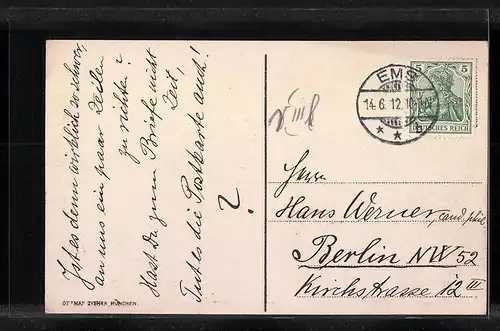 Ist es denn wirklich so schwer,
an uns ein paar Zeilen
zu richten?
Hast Du zum Briefe nicht
Zeit,
Tut es die Postkarte auch!
?
OTTMAR ZIEHER, MÜNCHEN.
EMS
14.6.12.
5 5
DEUTSCHES REICH
Herrn
Hans Werner, cand. phil.
Berlin NW 52
Kirchstrasse 12 III